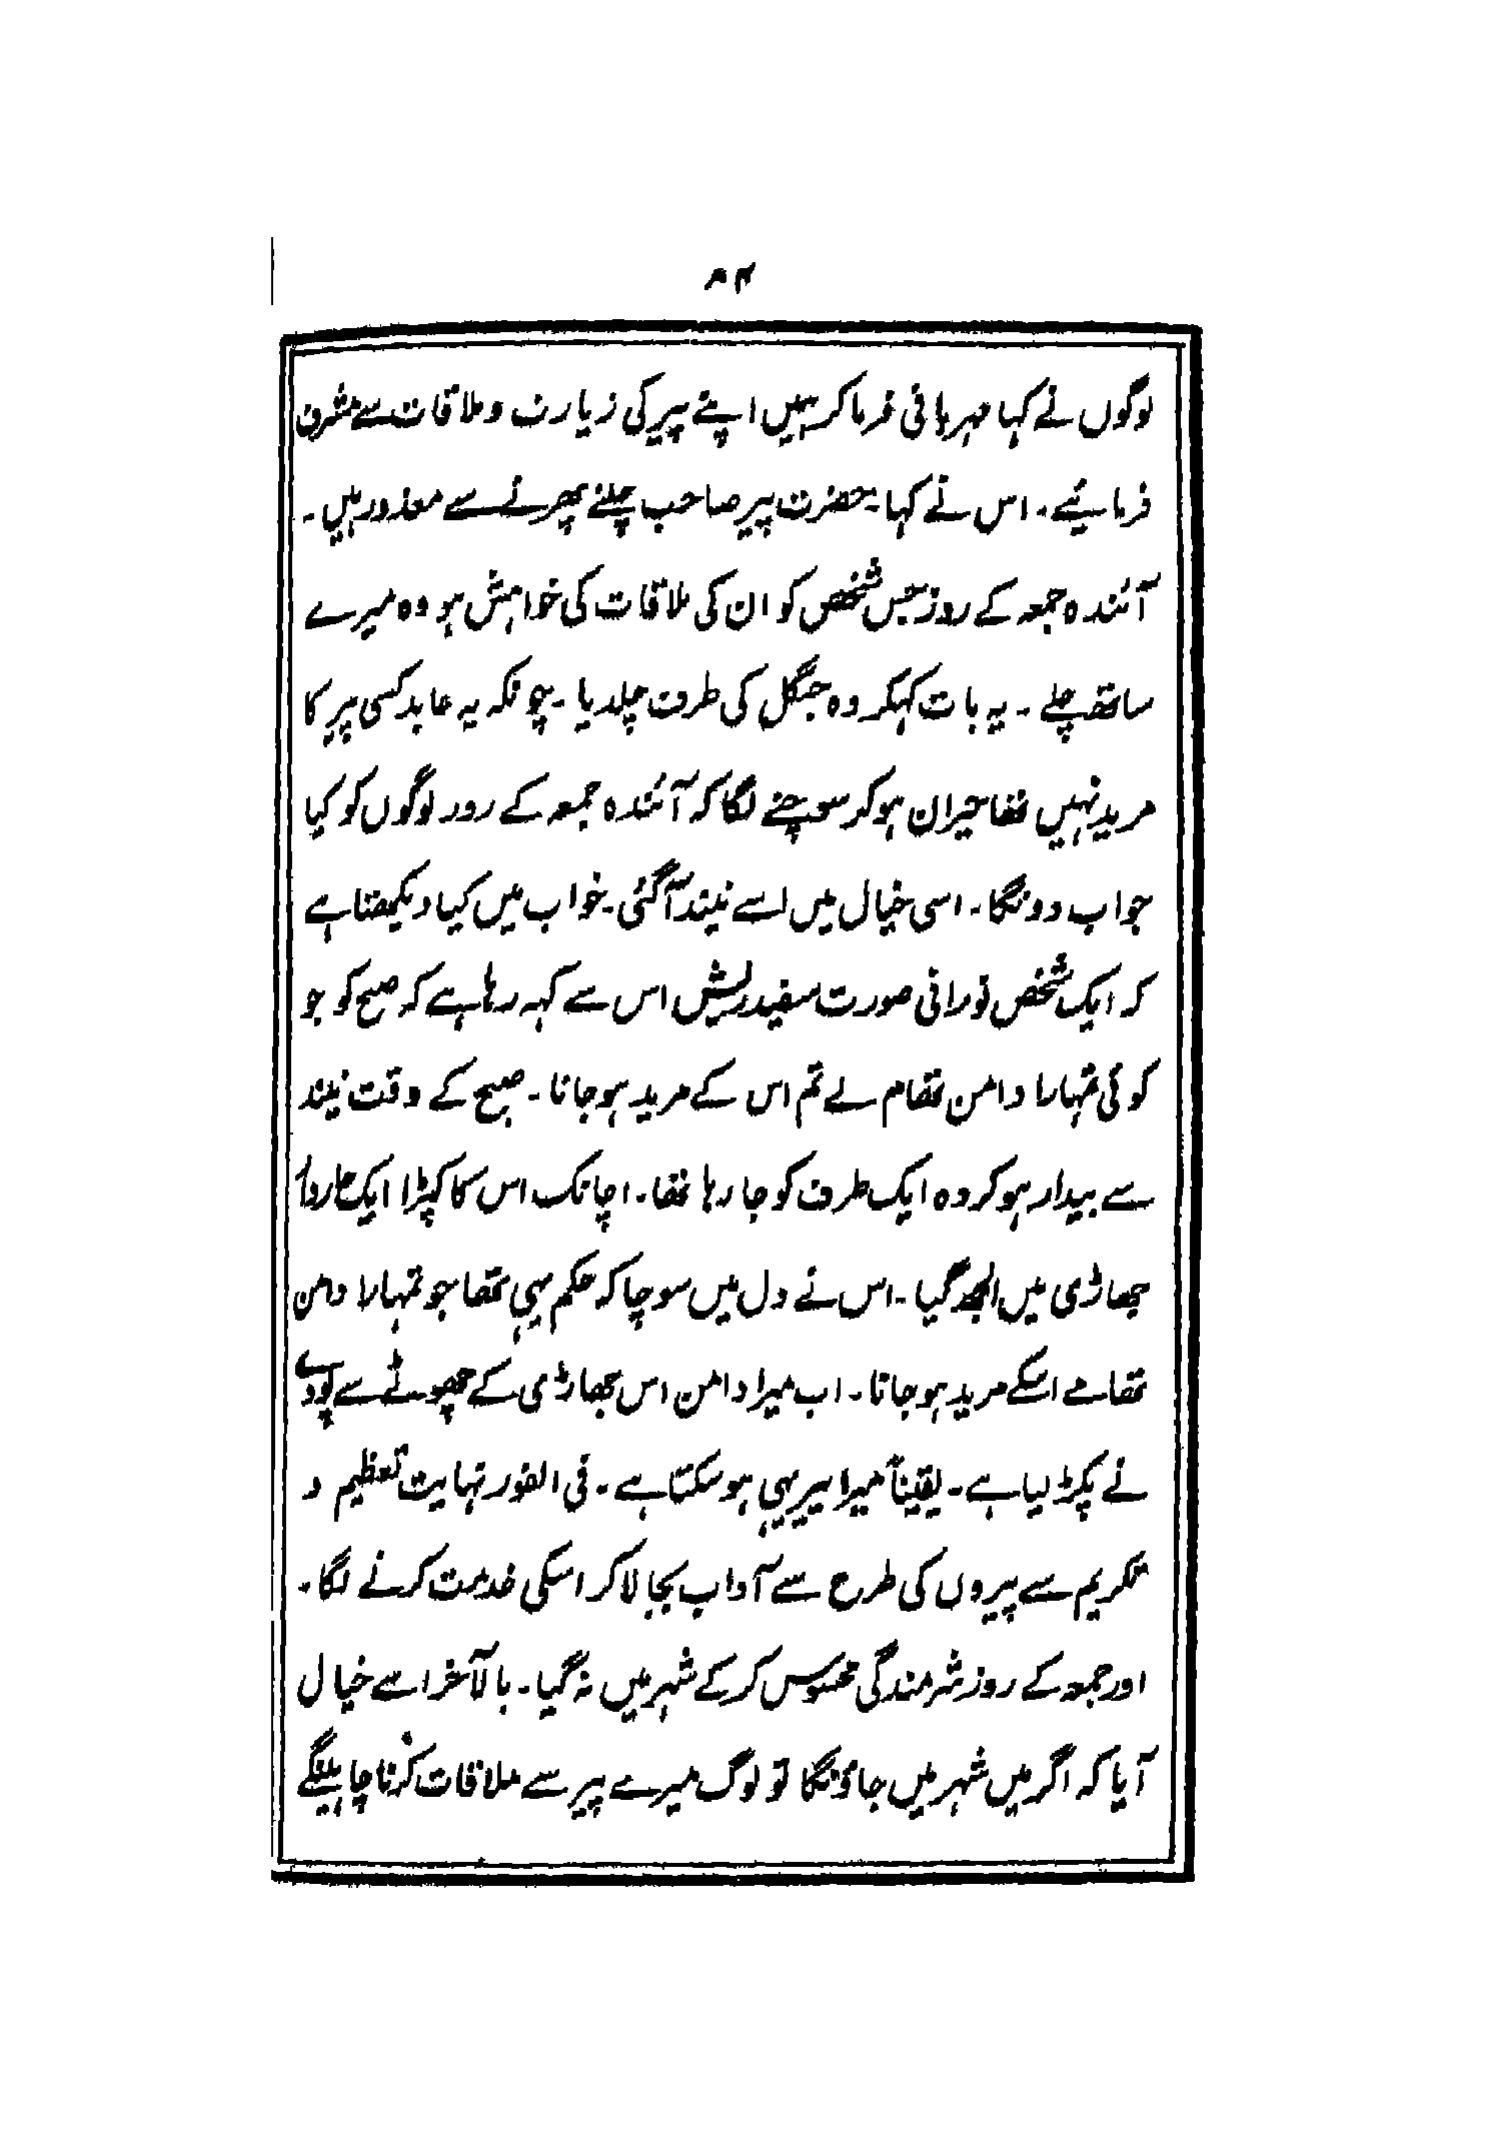 ۸۴
لوگوں نے کہا مہربانی فرما کر ہمیں اپنے پیر کی زیارت و ملاقات سے مشرف
فرمائیے۔ اس نے کہا۔ حضرت پیر صاحب چلنے پھرنے سے معذور ہیں۔
آئندہ جمعہ کے روز جس شخص کو ان کی ملاقات کی خواہش ہو وہ میرے
ساتھ چلے۔ یہ بات کہکر وہ جنگل کی طرف چلدیا۔ چونکہ یہ عابد کسی پیر کا
مرید نہیں تھا حیران ہو کر سوچنے لگا کہ آئندہ جمعہ کے روز لوگوں کو کیا
جواب دونگا۔ اسی خیال میں اسے نیند آگئی۔ خواب میں کیا دیکھتا ہے
کہ ایک شخص نورانی صورت سفید ریش اس سے کہہ رہا ہے کہ صبح کو جو
کوئی تمہارا دامن تھام لے تم اس کے مرید ہو جانا۔ صبح کے وقت نیند
سے بیدار ہو کر وہ ایک طرف کو جا رہا تھا۔ اچانک اس کا کپڑا ایک خاردار
جھاڑی میں الجھ گیا۔ اس نے دل میں سوچا کہ حکم یہی تھا جو تمہارا دامن
تھامے اسکے مرید ہو جانا۔ اب میرا دامن اس جھاڑی کے چھوٹے سے پودے
نے پکڑ لیا ہے۔ یقیناً میرا پیر یہی ہو سکتا ہے۔ فی الفور نہایت تعظیم و
تکریم سے پیروں کی طرح سے آداب بجا لا کر اسکی خدمت کرنے لگا۔
اور جمعہ کے روز شرمندگی محسوس کر کے شہر میں نہ گیا۔ بالآخر اسے خیال
آیا کہ اگر میں شہر میں جاؤنگا تو لوگ میرے پیر سے ملاقات کرنا چاہینگے